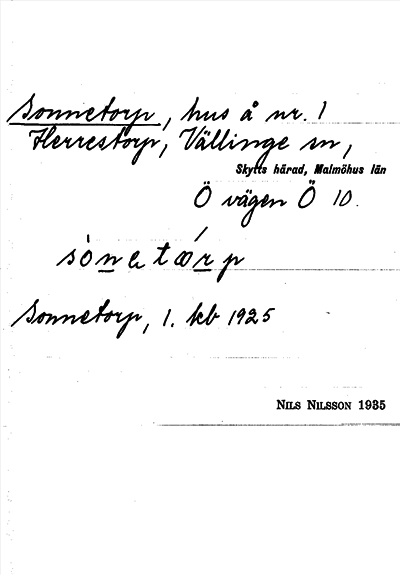 Sonnetorp, hus å nr. 1
Herrestorp, Vällinge sn,
Skytts härad, Malmöhus län
Ö vägen Ö 10.
sònetǽrp
Sonnetorp, 1. kb 1925
NILS NILSSON 1935